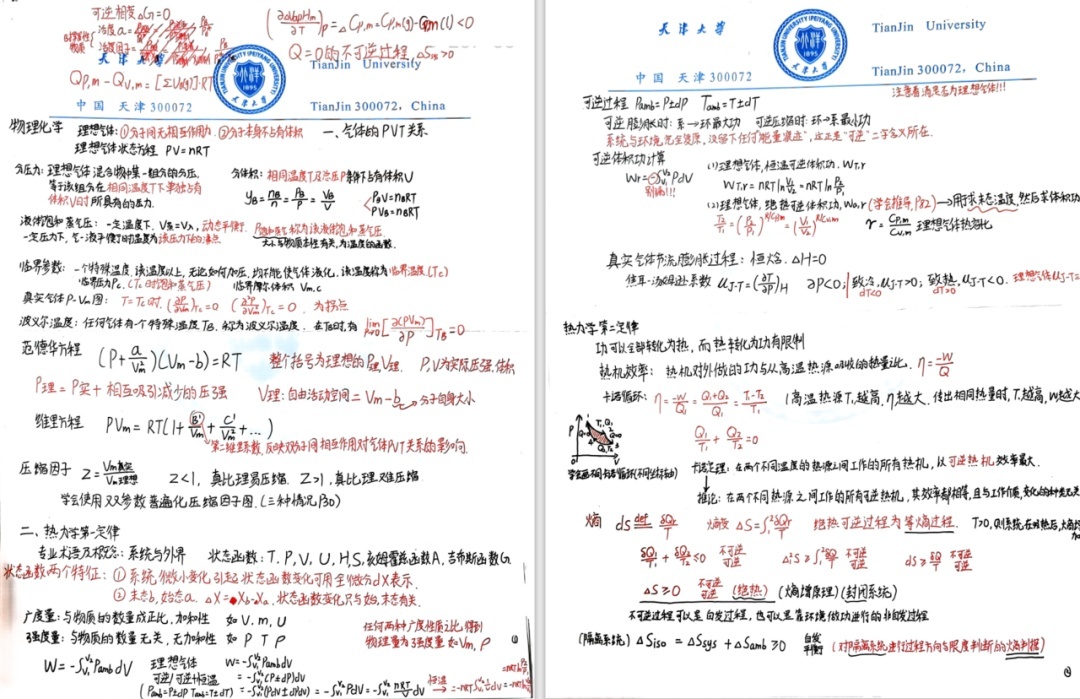 可逆相变△G=0
(∂△vapHm/∂T)p=△Cp,m=Cp,m(g)-Cp,m(l)<0
Q=0的不可逆过程,△Siso>0
天津大学
TianJin University
Qp,m-Qv,m=[ΣVB(g)]·RT
中国 天津300072
TianJin 300072, China
物理化学 理想气体:①分子间无相互作用力 ②分子本身不占有体积 一、气体的PVT关系
理想气体状态方程 PV=nRT
分压力:理想气体混合物中某一组分的分压,
等于该组分在相同温度T下单独占有
体积V时所具有的压力.
分体积:相同温度T及总压P条件下占有体积V
yB=nB/n=PB/P=VB/V
PBV=nBRT
PVB=nBRT
液体饱和蒸气压:一定温度下,动态平衡.
一定压力下,气-液平衡时的温度为该压力下的沸点
大小与物质本性有关,为温度的函数.
临界参数:一个特殊温度,该温度以上,无论如何加压,均不能使气体液化.该温度称为临界温度(Tc)
临界压力Pc.(Tc时饱和蒸气压) 临界摩尔体积 Vm,c
真实气体P-Vm图: T=Tc时,(∂P/∂Vm)Tc=0 (∂²P/∂Vm²)Tc=0. 为拐点
波义尔温度:任何气体有一个特殊温度TB,称为波义尔温度. 在TB时,有 lim P→0[∂(PVm)/∂P]TB=0
范德华方程 (P+a/Vm²)(Vm-b)=RT 整个括号为理想的P理V理. P,V为实际压强.体积
P理=P实+相互吸引减少的压强 V理:自由活动空间=Vm-b→分子自身大小
维里方程 PVm=RT(1+B'/Vm+C'/Vm²+...)
第二维里系数,反映双分子间相互作用对气体PVT关系的影响
压缩因子 Z=Vm真实/Vm理想 Z<1,真比理易压缩. Z>1,真比理难压缩.
学会使用双参数普遍化压缩因子图.(三种情况P30)
二、热力学第一定律
专业术语及概念:系统与外界 状态函数:T,P,V,U,H,S,亥姆霍兹函数A,吉布斯函数G.
状态函数两个特征:①系统微小变化引起状态函数变化可用全微分dX表示.
②末态b,始态a. △X=Xb-Xa.状态函数变化只与始,末态有关.
广度量:与物质的数量成正比,加和性 如V,m,U
强度量:与物质的数量无关,无加和性 如P T ρ
任何两种广度性质之比得到
物理量为强度量如Vm, ρ
W=-∫V1V2PambdV 理想气体 W=-∫V1V2PambdV
可逆/可逆+恒温 =-∫V1V2(P±dP)dV
(Pamb=P±dP Tamb=T±dT) =-∫V1V2(PdV±dPdV)=-∫V1V2PdV=-∫V1V2 nRT/V dV 恒温
①
天津大学
TianJin University
中国 天津300072
TianJin 300072, China
注意看清是否为理想气体!!!
可逆过程 Pamb=P±dP Tamb=T±dT
可逆膨胀时:系→环最大功 可逆压缩时:环→系最小功
系统与环境完全复原,没留下任何"能量痕迹",这正是"可逆"二字含义所在.
可逆体积功计算
Wr=-∫V1V2PdV
别漏!!!
(1)理想气体,恒温可逆体积功,WT,r
WT,r=nRTlnV1/V2=nRTlnP2/P1
(2)理想气体,绝热可逆体积功,Wa,r(学会推导,P62)→用求末态温度,然后求体积功
T2/T1=(P2/P1)^R/Cp,m=(V1/V2)^R/Cv,m γ=Cp,m/Cv,m 理想气体热容比
真实气体节流膨胀过程:恒焓.△H=0
焦耳-汤姆逊系数 μJ-T=(∂T/∂P)H ∂P<0,致冷,μJ-T>0; 致热,μJ-T<0. 理想气体μJ-T=
dT<0 dT>0
热力学第二定律
功可以全部转化为热,而热转化为功有限制
热机效率: 热机对外做的功与从高温热源吸收的热量之比. η=-W/Q1
卡诺循环: η=-W/Q1=Q1+Q2/Q1=T1-T2/T1 (高温热源T1越高,η越大. 传出相同热量时,T越高,W越大
Q1/T1+Q2/T2=0
卡诺定理:在两个不同温度的热源之间工作的所有热机,以可逆热机效率最大.
推论:在两个不同热源之间工作的所有可逆热机,其效率都相等,且与工作介质,变化的种类无关
熵 ds def δQr/T 熵变 △S=∫12δQr/T 绝热可逆过程为等熵过程.
δQ1/T1+δQ2/T2≤0 不可逆 可逆 △12S≥∫12δQ/T 不可逆 可逆 dS≥δQ/T 不可逆 可逆
△S≥0 不可逆 可逆 (绝热)(熵增原理)(封闭系统)
不可逆过程可以是自发过程,也可以是靠环境做功进行的非自发过程
(隔离系统)△Siso=△Ssys+△Samb≥0 自发 平衡 (对隔离系统进行过程方向与限度判断的熵判据)
②